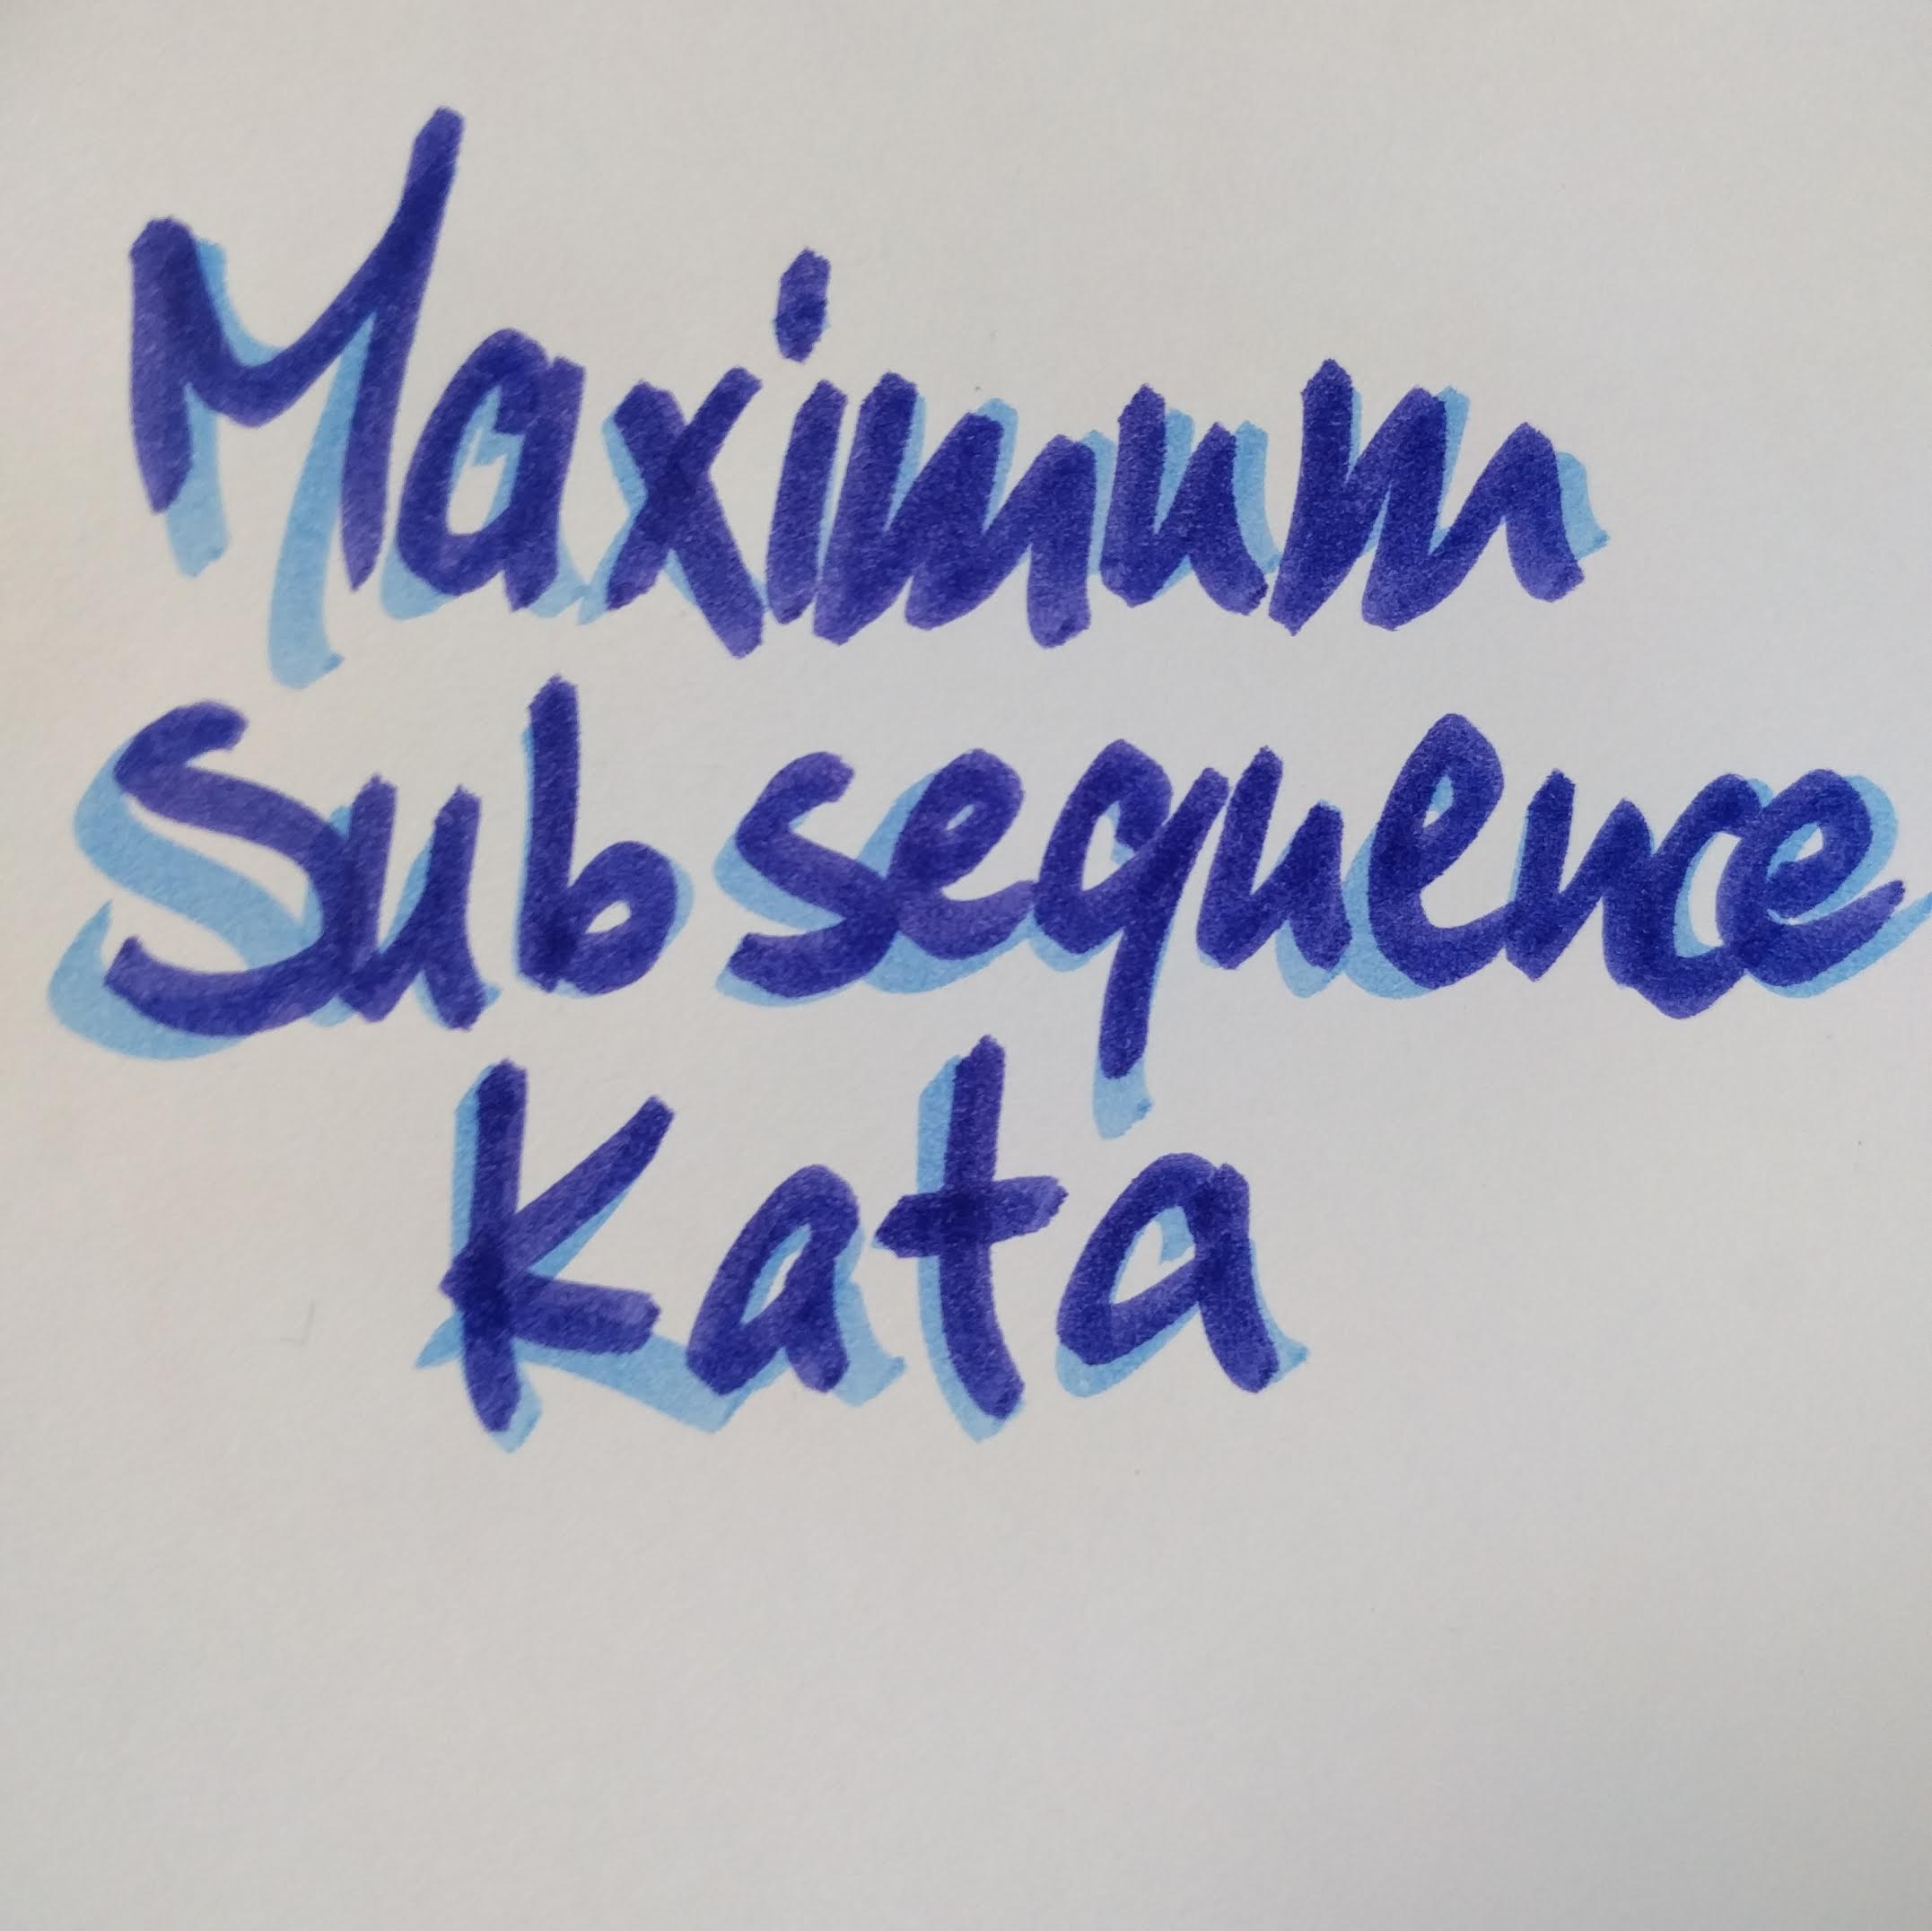 Maximum
Subsequence
Kata